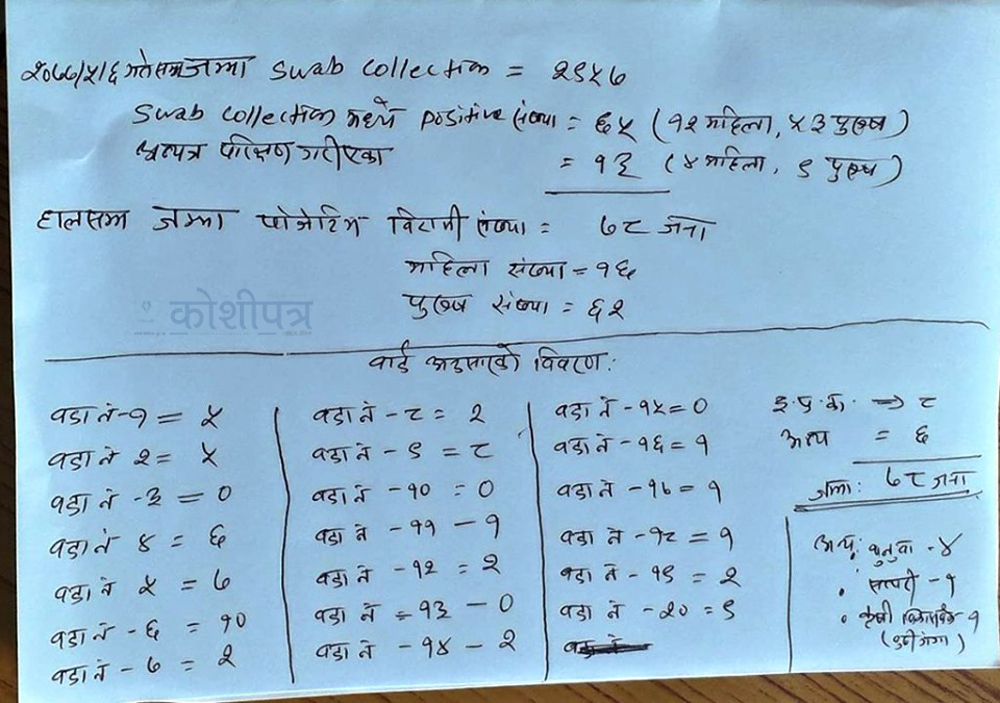 २०७७/५/६ गतेसम्म जम्मा swab collection = २९५७
swab collection मध्ये positive संख्या = ६५ (१२ महिला, ५३ पुरुष)
अन्यत्र परिक्षण गरीएका = १३ (४ महिला, ९ पुरुष)
हालसम्म जम्मा पोजेटिभ बिरामी संख्या = ७८ जना
महिला संख्या = १६
पुरुष संख्या = ६२
कोशीपत्र
वार्ड अनुसारको विवरण:
वडा नं -१ = ५
वडा नं २ = ५
वडा नं -३ = ०
वडा नं ४ = ६
वडा नं ५ = ७
वडा नं -६ = १०
वडा नं - ७ = २
वडा नं - ८ = २
वडा नं - ९ = ८
वडा नं - १० = ०
वडा नं - ११ - १
वडा नं - १२ = २
वडा नं - १३ - ०
वडा नं - १४ - २
वडा नं - १५ = ०
वडा नं - १६ = १
वडा नं - १७ = १
वडा नं - १८ = १
वडा नं - १९ = २
वडा नं - २० = ९
इ.प्र.का. → ८
अन्य = ६
जम्मा: ७८ जना
अन्य: - ४
• सप्तरी - १
• कृषी १